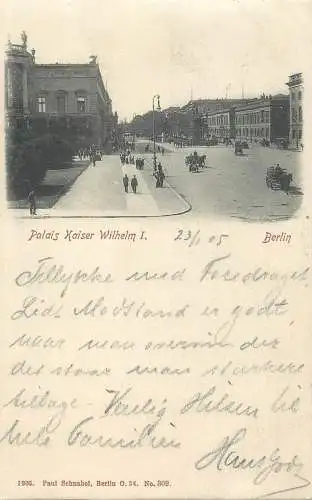 Palais Kaiser Wilhelm I. 23/1 05 Berlin
Tillykke med Foredraget.
Lidt Modstand er godt,
naar man overvinder
det staar man stærkere
tilbage - Venlig Hilsen til
hele Familien
Hans
1905. Paul Schnabel, Berlin O. 34. No. 309.